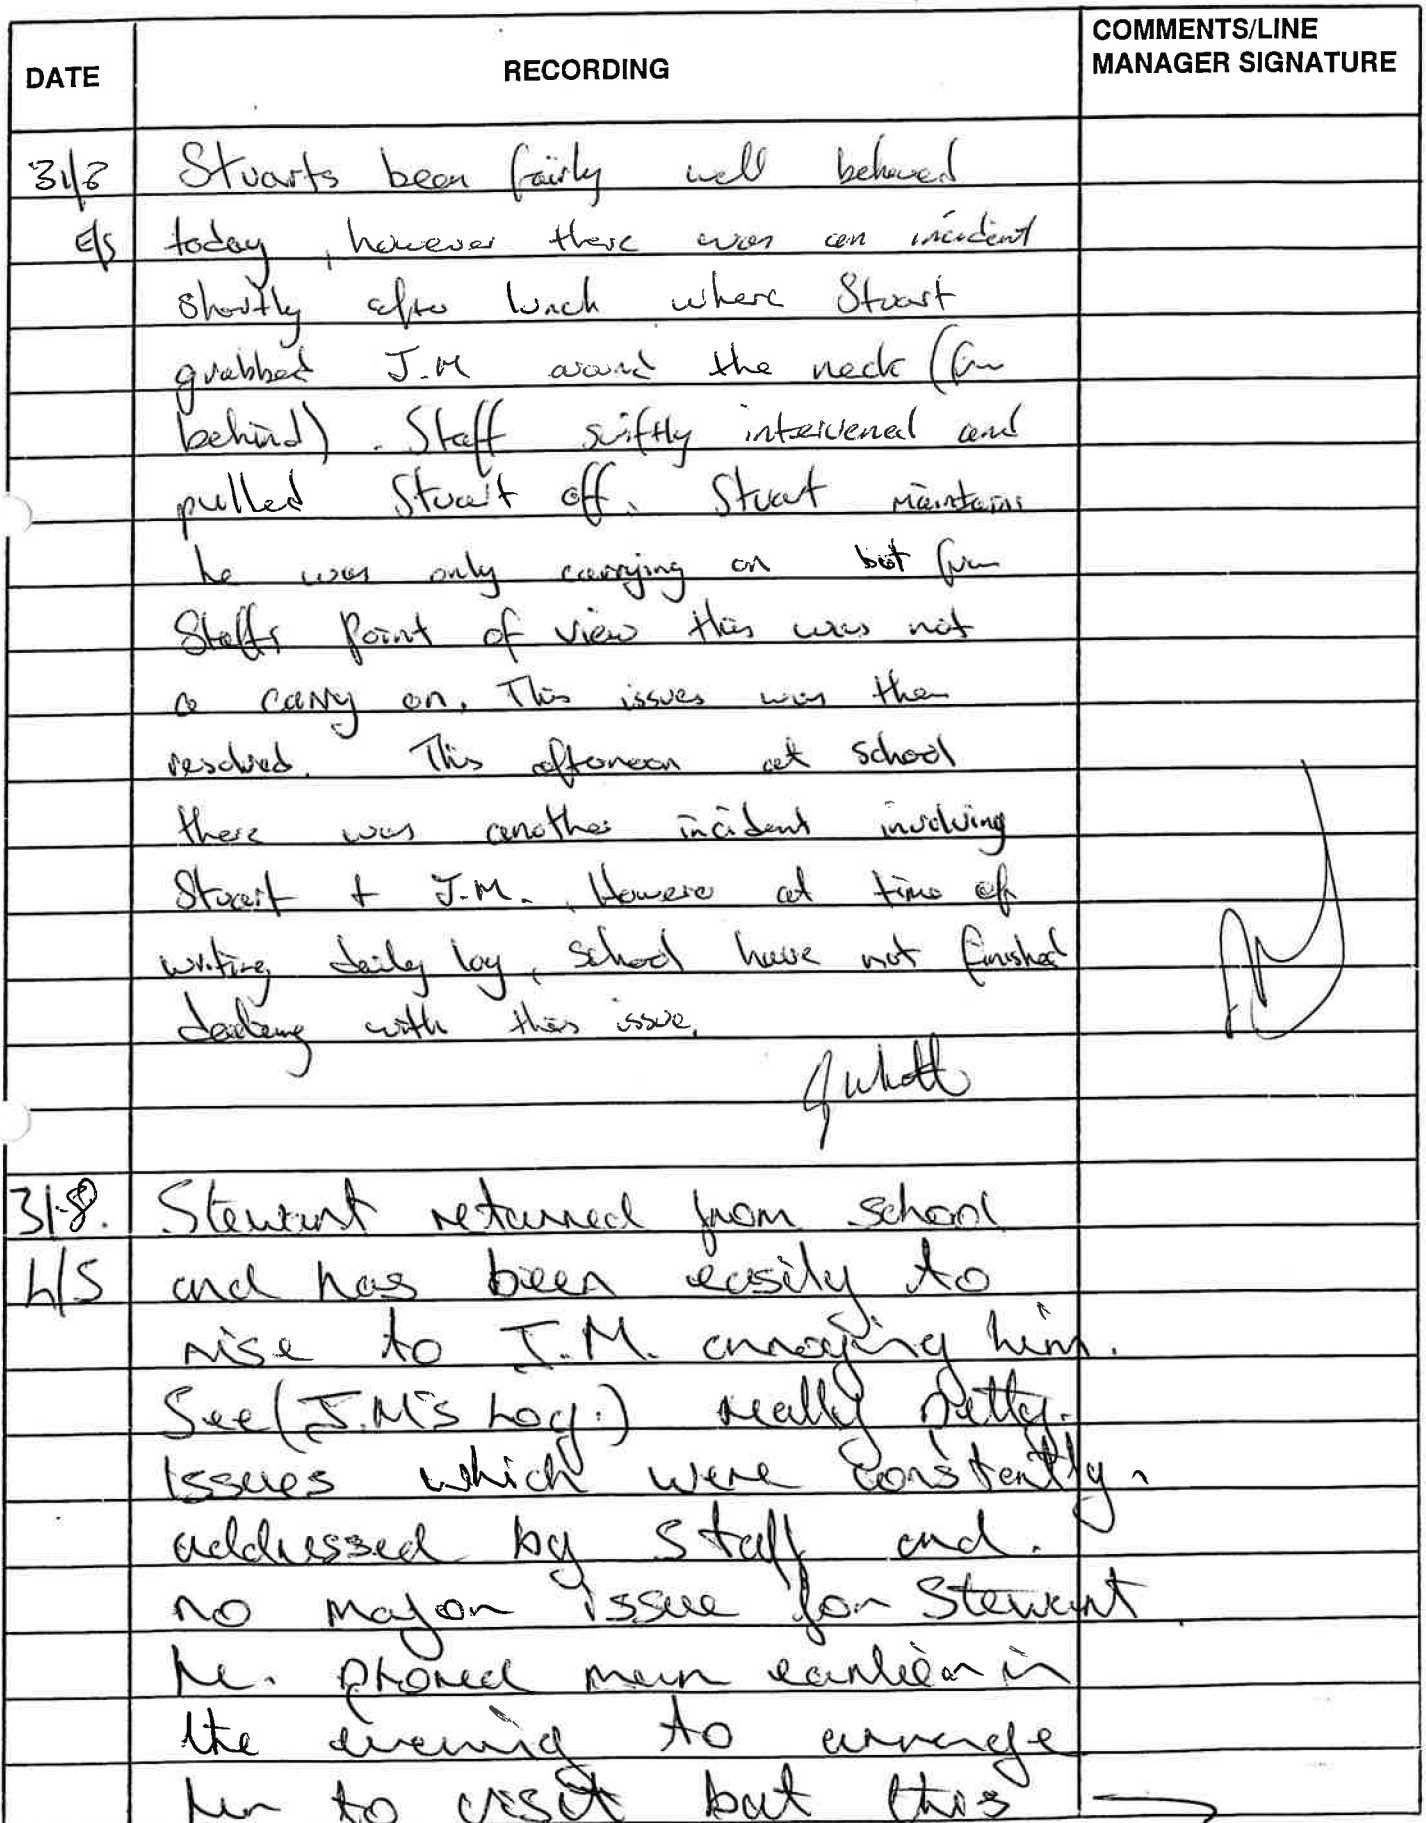 COMMENTS/LINE
DATE RECORDING MANAGER SIGNATURE
31/8 Stuarts been fairly well behaved
E/S today, however there was an incident
shortly after lunch where Stuart
grabbed J.M around the neck (from
behind). Staff swiftly intervened and
pulled Stuart off. Stuart maintains
he was only carrying on but from
Staffs point of view this was not
a carry on. This issues was then
resolved. This afternoon at school
there was another incident involving
Stuart + J.M. However at time of
writing daily log, school have not finished
dealing with this issue.
31.8. Stewart returned from school
L/S and has been easily to
rise to J.M. annoying him.
See (J.M's Log.) really petty.
issues which were constantly.
addressed by staff and.
no major issue for Stewart.
he. phoned mum earlier in
the evening to arrange
her to visit but this →